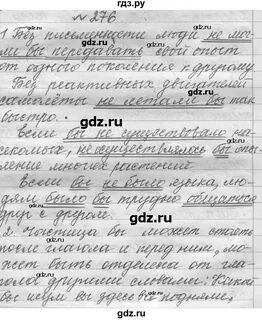 № 276
1 Без письменности люди не мог-
ли бы передавать свой опыт
от одного поколения к другому
Без реактивных двигателей
самолёты не летали бы так
быстро.
Если бы не существовало на-
секомых, не осуществлялось бы опы-
ление многих растений
Если бы не было языка, лю-
дям было бы трудно общаться
друг с другом.
2. Частица бы может стоять
после глагола и перед ним, мо-
жет быть отделена от гла-
гола другими словами: Какой
бы шум вы здесь не подняли,
gdz.ru
gdz.ru
gdz.ru
gdz.ru
gdz.ru
gdz.ru
gdz.ru
gdz.ru
gdz.ru